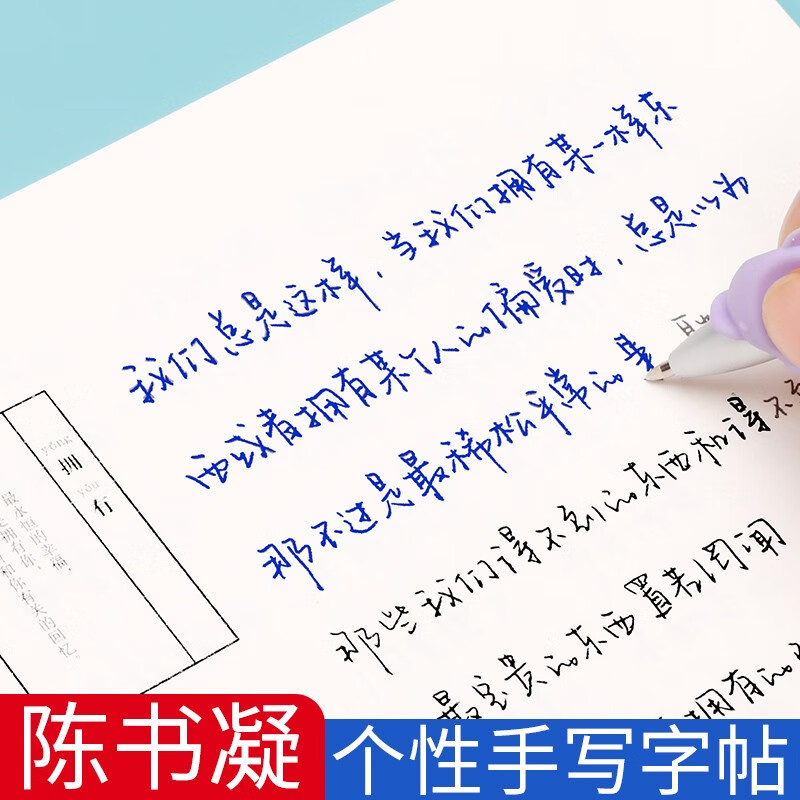 我们总是这样，当我们拥有某一样东
西或者拥有某个人的偏爱时，总是以为
那不过是最稀松平常的
那些我们得不到的东西和得不
最宝贵的东西置若罔闻
拥有的
yōng
拥
yǒu
有
最永恒的幸福
陈书凝
个性手写字帖